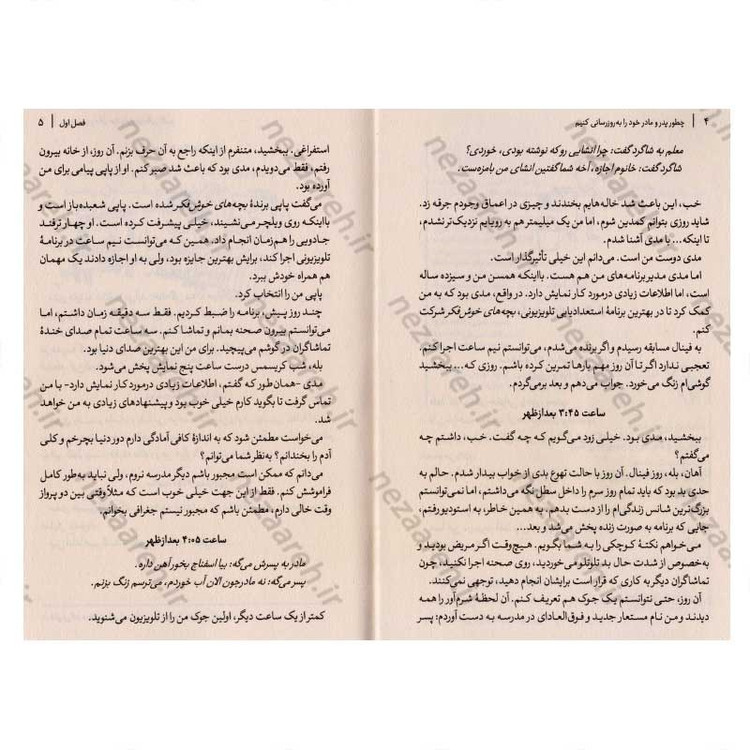 ۴ | چطور پدر و مادر خود را به‌روزرسانی کنیم
معلم به شاگرد گفت: چرا انشایی رو که نوشته بودی، خوردی؟
شاگرد گفت: خانوم اجازه، آخه شما گفتین انشای من بامزه‌ست.
خب، این باعث شد خاله‌هایم بخندند و چیزی در اعماق وجودم جرقه زد.
شاید روزی بتوانم کمدین شوم، اما من یک میلیمتر هم به رویایم نزدیک‌تر نشدم،
تا اینکه... با مدی آشنا شدم.
مدی دوست من است. می‌دانم این خیلی تأثیرگذار است.
اما مدی مدیر برنامه‌های من هم هست. بااینکه همسن من و سیزده ساله
است، اما اطلاعات زیادی درمورد کار نمایش دارد. در واقع، مدی بود که به من
کمک کرد تا در بهترین برنامهٔ استعدادیابی تلویزیونی، بچه‌های خوش‌فکر شرکت
کنم.
به فینال مسابقه رسیدم و اگر برنده می‌شدم، می‌توانستم نیم ساعت اجرا کنم.
تعجبی ندارد اگر تا آن روز مهم بارها تمرین کرده باشم. روزی که... ببخشید
گوشی‌ام زنگ می‌خورد. جواب می‌دهم و بعد برمی‌گردم.
ساعت ۳:۴۵ بعدازظهر
ببخشید، مدی بود. خیلی زود می‌گویم که چه گفت. خب، داشتم چه
می‌گفتم؟
آهان، بله، روز فینال. آن روز با حالت تهوع بدی از خواب بیدار شدم. حالم به
حدی بد بود که باید تمام روز سرم را داخل سطل نگه می‌داشتم، اما نمی‌توانستم
بزرگ‌ترین شانس زندگی‌ام را از دست بدهم، به همین خاطر، به استودیو رفتم،
جایی که برنامه به صورت زنده پخش می‌شد و بعد...
می‌خواهم نکتهٔ کوچکی را به شما بگویم. هیچ‌وقت اگر مریض بودید و
به‌خصوص از شدت حال بد تلوتلو می‌خوردید، روی صحنه اجرا نکنید، چون
تماشاگران دیگر به کاری که قرار است برایشان انجام دهید، توجهی نمی‌کنند.
آن روز، حتی نتوانستم یک جوک هم تعریف کنم. آن لحظهٔ شرم‌آور را همه
دیدند و من نام مستعار جدید و فوق‌العاده‌ای در مدرسه به دست آوردم: پسر
فصل اول | ۵
استفراغی. ببخشید، متنفرم از اینکه راجع به آن حرف بزنم. آن روز، از خانه بیرون
رفتم، فقط می‌دویدم، مدی بود که باعث شد صبر کنم. او از پاپی پیامی برای من
آورده بود.
می‌گفت پاپی برندهٔ بچه‌های خوش‌فکر شده است. پاپی شعبده‌باز است و
بااینکه روی ویلچر می‌نشیند، خیلی پیشرفت کرده است. او چهار ترفند
جادویی را هم‌زمان انجام داد. همین که می‌توانست نیم ساعت در برنامهٔ
تلویزیونی اجرا کند، برایش بهترین جایزه بود، ولی به او اجازه دادند یک مهمان
هم همراه خودش ببرد.
پاپی من را انتخاب کرد.
چند روز پیش، برنامه را ضبط کردیم. فقط سه دقیقه زمان داشتم، اما
می‌توانستم بیرون صحنه بمانم و تماشا کنم. سه ساعت تمام صدای خندهٔ
تماشاگران در گوشم می‌پیچید. برای من این بهترین صدای دنیا بود.
بله، شب کریسمس درست ساعت پنج نمایش پخش می‌شود.
مدی -همان‌طور که گفتم، اطلاعات زیادی درمورد کار نمایش دارد- با من
تماس گرفت تا بگوید کارم خیلی خوب بود و پیشنهادهای زیادی به من خواهد
شد.
می‌خواست مطمئن شود که به اندازهٔ کافی آمادگی دارم دور دنیا بچرخم و کلی
آدم را بخندانم؟ به‌نظر شما می‌توانم؟
می‌دانم که ممکن است مجبور باشم دیگر مدرسه نروم، ولی نباید به‌طور کامل
فراموشش کنم. فقط از این جهت خیلی خوب است که مثلاً وقتی بین دو پرواز
وقت خالی دارم، مطمئن باشم که مجبور نیستم جغرافی بخوانم.
ساعت ۴:۰۵ بعدازظهر
مادر به پسرش می‌گه: بیا اسفناج بخور آهن داره.
پسر می‌گه: نه مادرجون الان آب خوردم، می‌ترسم زنگ بزنم.
کمتر از یک ساعت دیگر، اولین جوک من را از تلویزیون می‌شنوید.
nezaareh.ir